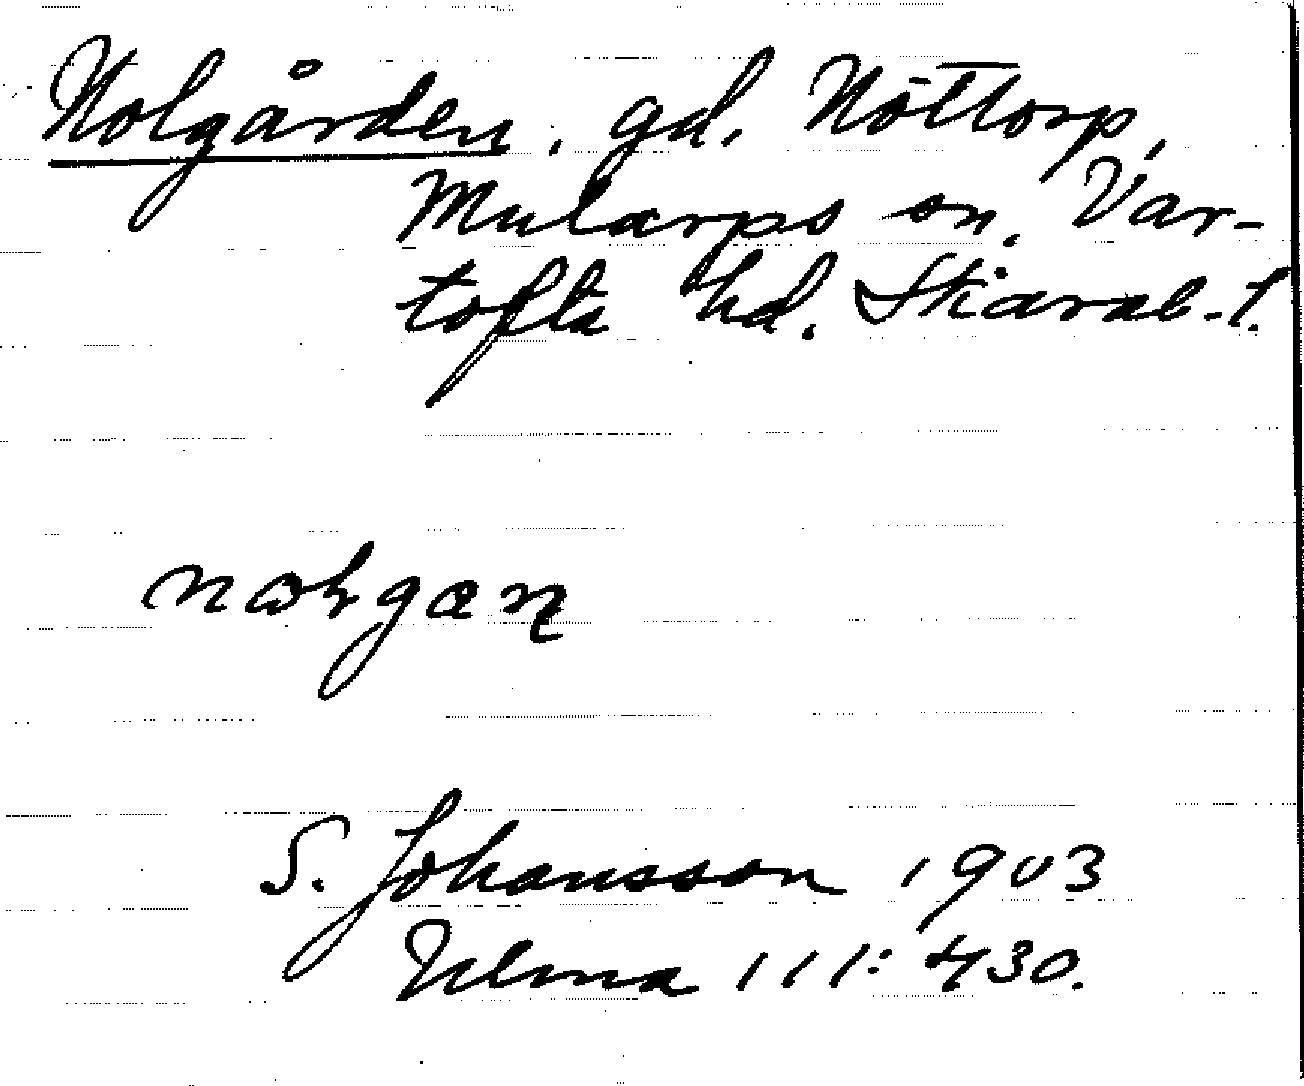 Nolgården, gd. Nöttorp,
Mularps sn. Var-
tofta hd. Skarab. l.
S. Johansson 1903
Ulma 111: 430.